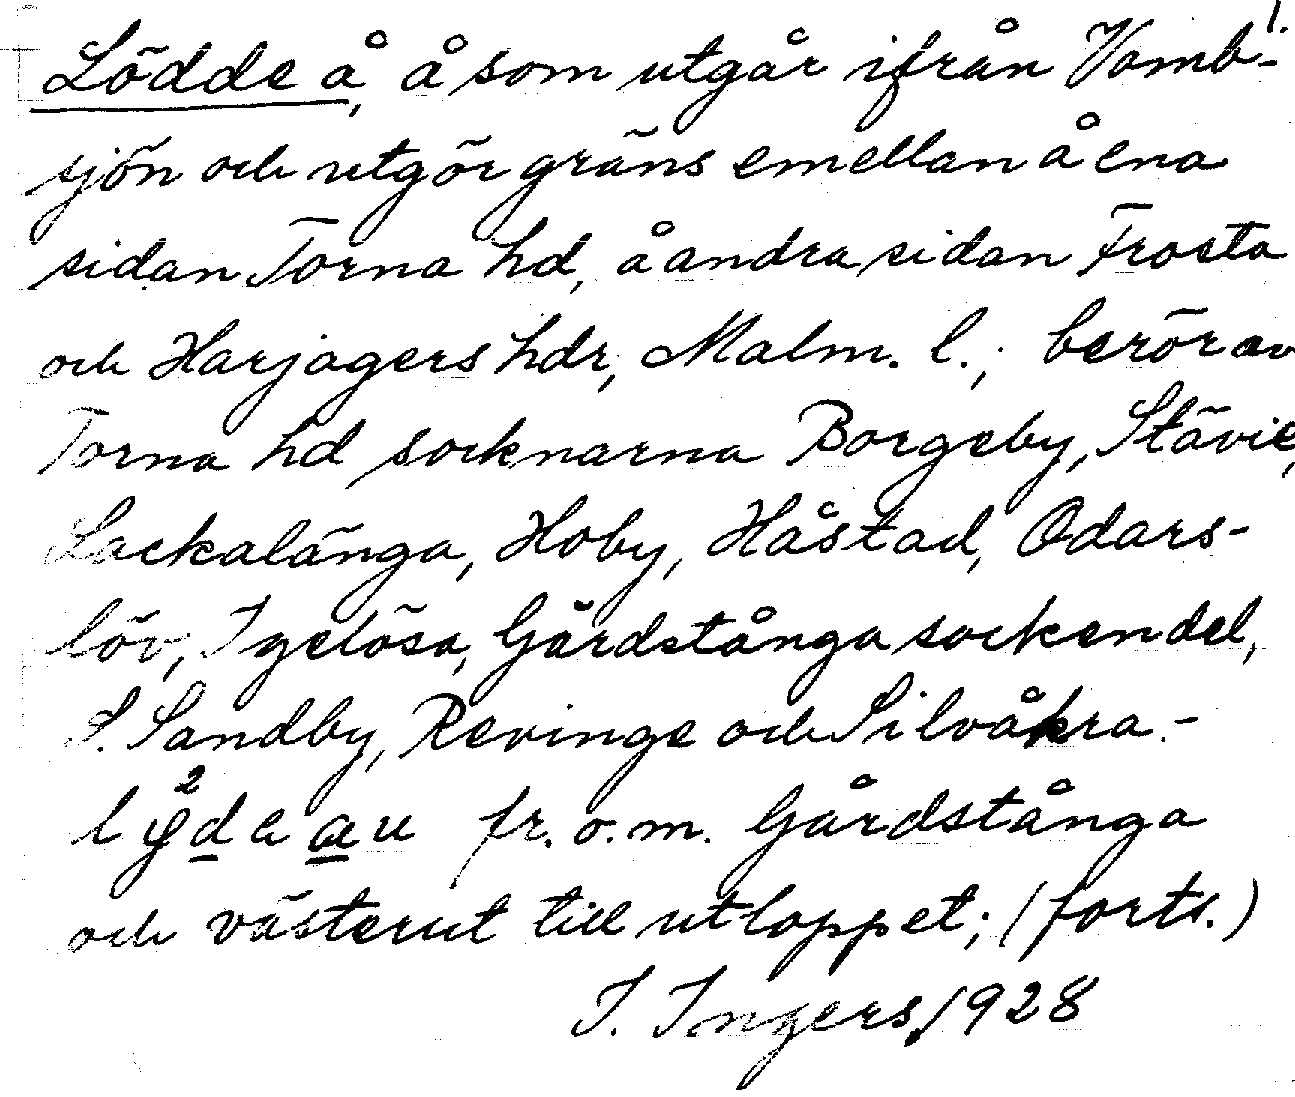 1.
Lödde å, å som utgår ifrån Vomb-
sjön och utgör gräns emellan å ena
sidan Torna hd, å andra sidan Frosta
och Harjagers hdr, Malm. l.; berör av
Torna hd socknarna Borgeby, Stävie,
Lackalänga, Hoby, Håstad, Odars-
löv, Igelösa, Gårdstånga sockendel,
S. Sandby, Revinge och Silvåkra.-
fr. o. m. Gårdstånga
och västerut till utloppet; (forts.)
I. Ingers, 1928